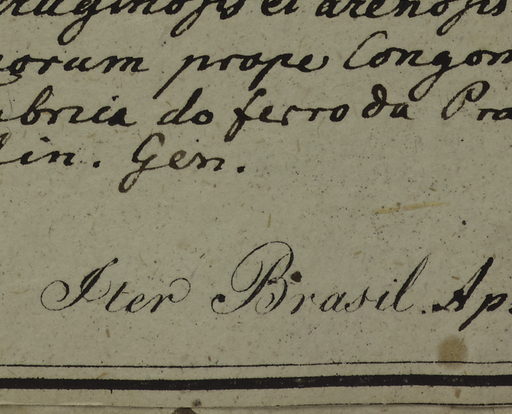 ruginosis et arenosis
orum prope Congon
abrica do ferro da Pra
lin. Gen.
Iter Brasil. Ap.